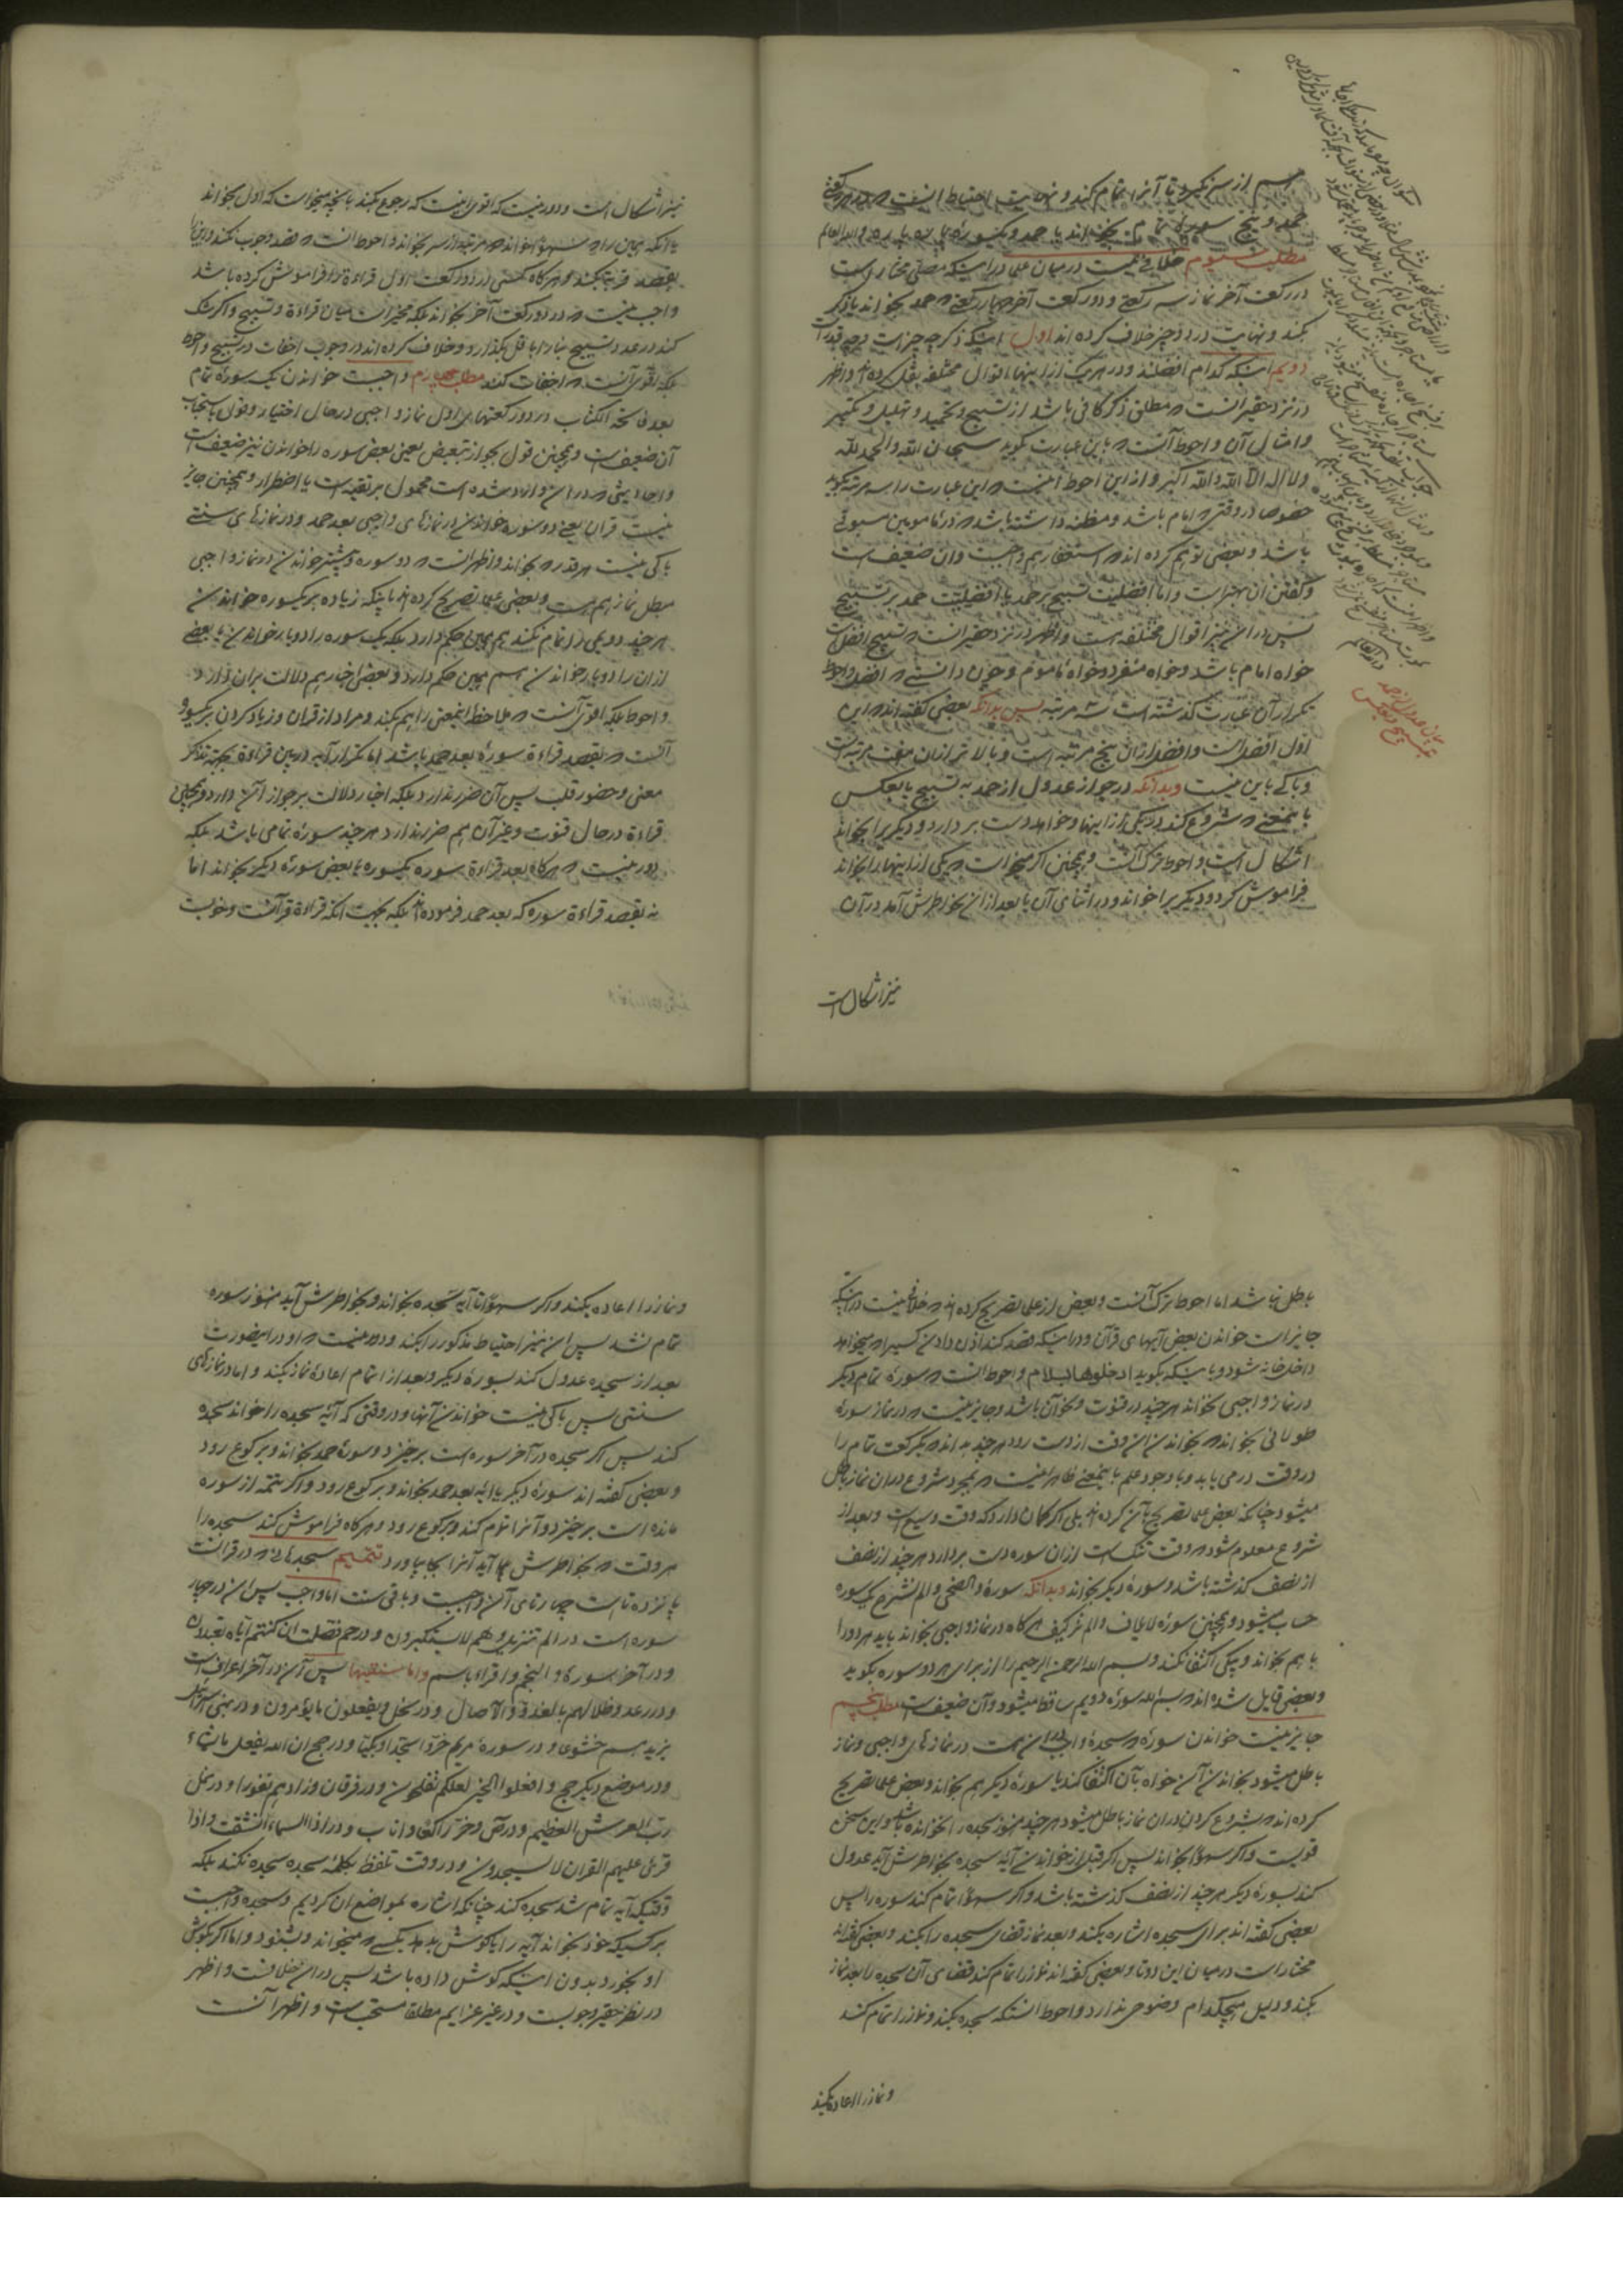 از سر بگیرد تا آنرا تمام کند و نهایت احتیاط آنست که در هر رکعتی
حمد و پنج سوره تمام بخواند یا حمد و یکسوره پاره پاره والله العالم
مطلب سیوم خلافی نیست در میان علما در اینکه مصلی مختار است
در رکعت آخر نماز سه رکعتی و دو رکعت آخر چهار رکعتی که حمد بخواند یا ذکر
بکند و نهایت در دو چیز خلاف کرده اند اول اینکه ذکر چه چیز است و چه قدر است
دویم اینکه کدام افضلند و در هر یک از اینها اقوال مختلفه نقل کرده اند و اظهر
در نزد حقیر آنست که مطلق ذکر کافی باشد از تسبیح و تحمید و تهلیل و تکبیر
و امثال آن و احوط آنست که باین عبارت بگوید سبحان الله والحمد لله
ولا اله الا الله والله اکبر و از این احوط آنست که این عبارت را سه مرتبه بگوید
خصوصا در وقتی که امام باشد و مظنه داشته باشد که در مامومین مسبوقی
باشد و بعضی توهم کرده اند که استغفار هم واجبست و آن ضعیف است
و گفتن آن بهتر است و اما افضلیت تسبیح بر حمد یا افضلیت حمد بر تسبیح
پس در آن نیز اقوال مختلفه است و اظهر در نزد حقیر آنست که تسبیح افضل است
خواه امام باشد و خواه منفرد و خواه ماموم و چون دانستی که افضل و احوط
تکرار آن عبارت گذشته است سه مرتبه پس بدانکه بعضی گفته اند که این
اول افضل است و افضل از آن پنج مرتبه است و بالاتر از آن هفت مرتبه است
و باکی باین نیست و بدانکه در جواز عدول از حمد به تسبیح یا بعکس
باینمعنی که شروع کند در یکی از اینها و خواهد دست بردارد و دیگری را بخواند
اشکال است و احوط ترک آنست و همچنین اگر میخواست که یکی از اینها را بخواند
فراموش کرد و دیگریرا خواند و در اثنای آن یا بعد از آن بخاطرش آمد در آن
نیز اشکال است
نیز اشکال است و دور نیست که اقوی اینست که رجوع بکند بآنچه میخواست که اول بخواند
یا آنکه همین را که سهوا خوانده مرتبه از سر بخواند و احوط آنست که قصد وجوب نکند
بقصد قربت بکند و هرگاه کسی در دو رکعت اول قراءة را فراموش کرده باشد
واجب نیست که در دو رکعت آخر بخواند بلکه مخیر است میان قراءة و تسبیح و اگر شک
کند در عدد تسبیح بنا را باقل بگذارد و خلاف کرده اند در وجوب اخفات در تسبیح و احوط
بلکه اقوی آنست که اخفات کند مطلب چهارم واجبست خواندن یک سوره تمام
بعد فاتحة الکتاب در دو رکعتهای اول نماز واجبی در حال اختیار و قول باستحباب
آن ضعیف است و همچنین قول بجواز تبعیض یعنی بعض سوره را خواندن نیز ضعیف است
و احادیثی که در آن وارد شده است محمول بر تقیه است یا اضطرار و همچنین جایز
نیست قران یعنی دو سوره خواندن در نمازهای واجبی بعد حمد و در نمازهای سنتی
باکی نیست هر قدر که بخواند و اظهر آنست که دو سوره و بیشتر خواندن در نماز واجبی
مبطل نماز هم هست و بعضی علما تصریح کرده اند باینکه زیاده بر یکسوره خواندن
هر چند دویمی را تمام نکند هم همین حکم دارد بلکه یک سوره را دو بار خواندن یا بعضی
از آن را دو بار خواندن هم همین حکم دارد و بعضی اخبار هم دلالت بر آن دارد
و احوط بلکه اقوی آنست که ملاحظه اینمعنی را هم بکند و مراد از قران و زیاد کردن بر یکسوره
آنست که بقصد قراءة سوره بعد حمد باشد اما تکرار آیه در بین قراءة بجهة تذکر
معنی و حضور قلب پس آن ضرر ندارد بلکه اخبار دلالت بر جواز آن دارد و همچنین
قراءة در حال قنوت و غیر آن هم ضرر ندارد هر چند سوره تمامی باشد بلکه
دور نیست که هرگاه بعد قراءة سوره یکسوره یا بعض سوره دیگر بخواند اما
نه بقصد قراءة سوره که بعد حمد فرموده اند بلکه بجهت آنکه قراءة قرآنست و خوبست
باطل نباشد اما احوط ترک آنست و بعض از علما تصریح کرده اند که خلافی نیست در اینکه
جایز است خواندن بعض آیهای قرآن و در اینکه قصد کند اذن دادن کسیرا که میخواهد
داخل خانه شود و باینکه بگوید ادخلوها بسلام و احوط آنست که سوره تمام دیگر
در نماز واجبی نخواند هر چند در قنوت و نحو آن باشد و جایز نیست که در نماز سوره
طولانی بخواند که بخواندن آن وقت از دست رود هر چند بداند که یک رکعت تمام را
در وقت در می یابد و با وجود علم باینمعنی ظاهر اینست که بمجرد شروع در آن نماز باطل
میشود چنانکه بعض علما تصریح بآن کرده اند بلی اگر گمان دارد که وقت وسیع است و بعد از
شروع معلوم شود که وقت تنگ است از آن سوره دست بردارد هر چند از نصف
از نصف گذشته باشد و سوره دیگر بخواند و بدانکه سوره والضحی و الم نشرح یک سوره
حساب میشود و همچنین سوره لایلاف و الم تر کیف هرگاه در نماز واجبی بخواند باید هر دو را
با هم بخواند و بیکی اکتفا نکند و بسم الله الرحمن الرحیم را از برای هر دو سوره بگوید
و بعضی قایل شده اند که بسم الله سوره دویم ساقط میشود و آن ضعیف است مطلب پنجم
جایز نیست خواندن سوره که سجده واجب در آن هست در نمازهای واجبی و نماز
باطل میشود بخواندن آن خواه بآن اکتفا کند یا سوره دیگر هم بخواند و بعض علما تصریح
کرده اند که بشروع کردن در آن نماز باطل میشود هر چند هنوز سجده را نخوانده باشد و این سخن
قویست و اگر سهوا بخواند پس اگر قبل از خواندن آیه سجده بخاطرش آید عدول
کند بسوره دیگر هر چند از نصف گذشته باشد و اگر سهوا تمام کند سوره را پس
بعضی گفته اند برای سجده اشاره بکند و بعد نماز قضای سجده را بکند و بعضی گفته اند
مختار است در میان این دو تا و بعضی گفته اند نماز را تمام کند قضای آن سجده را بعد نماز
بکند و دلیل هیچکدام وضوحی ندارد و احوط آنستکه سجده بکند و نماز را تمام کند
و نماز را اعاده بکند
و نماز را اعاده بکند و اگر سهوا تا آیه سجده بخواند و بخاطرش آید هنوز سوره
تمام نشد پس آن نیز احتیاط مذکور را بکند و دور نیست که او در اینصورت
بعد از سجده عدول کند بسوره دیگر و بعد از اتمام اعاده نماز بکند و اما در نمازهای
سنتی پس باکی نیست خواندن آنها و در وقتی که آیه سجده را خواند سجده
کند پس اگر سجده در آخر سوره است برخیزد و سوره حمد بخواند و برکوع رود
و بعضی گفته اند سوره دیگر یا آیه بعد حمد بخواند و برکوع رود و اگر تتمه از سوره
مانده است برخیزد و آنرا تمام کند و برکوع رود و هرگاه فراموش کند سجده را
هر وقت که بخاطرش بیاید آنرا بجا بیاورد تتمیم سجدهائی که در قرآنست
پانزده تا است چهار تای آن واجبست و باقی سنت اما واجب پس آن در چهار
سوره است در الم تنزیل و هم لا یستکبرون و در حم فصلت ان کنتم ایاه تعبدون
و در آخر سوره والنجم و اقراء باسم واما سنتیها پس آن در آخر اعرافست
و در رعد و ظلالهم بالغدو والآصال و در نحل و یفعلون ما یؤمرون و در بنی اسرائیل
یزیدهم خشوعا و در سوره مریم خروا سجدا و بکیا و در حج ان الله یفعل ما یشاء
و در موضع دیگر حج و افعلوا الخیر لعلکم تفلحون و در فرقان وزادهم نفورا و در نمل
رب العرش العظیم و در ص وخر راکعا واناب و در اذا السماء انشقت واذا
قرئ علیهم القرآن لا یسجدون و در وقت تلفظ بکلمه سجده سجده نکند بلکه
وقتیکه آیه تمام شد سجده کند چنانکه اشاره بمواضع آن کردیم و سجده واجبست
بر کسیکه خود بخواند آیه را یا گوش بدهد بکسی که میخواند و بشنود و اما اگر بگوش
او بخورد بدون اینکه گوش داده باشد پس در آن خلافست و اظهر
در نظر حقیر وجوبست و در غیر عزایم مطلقا مستحب است و اظهر آنست